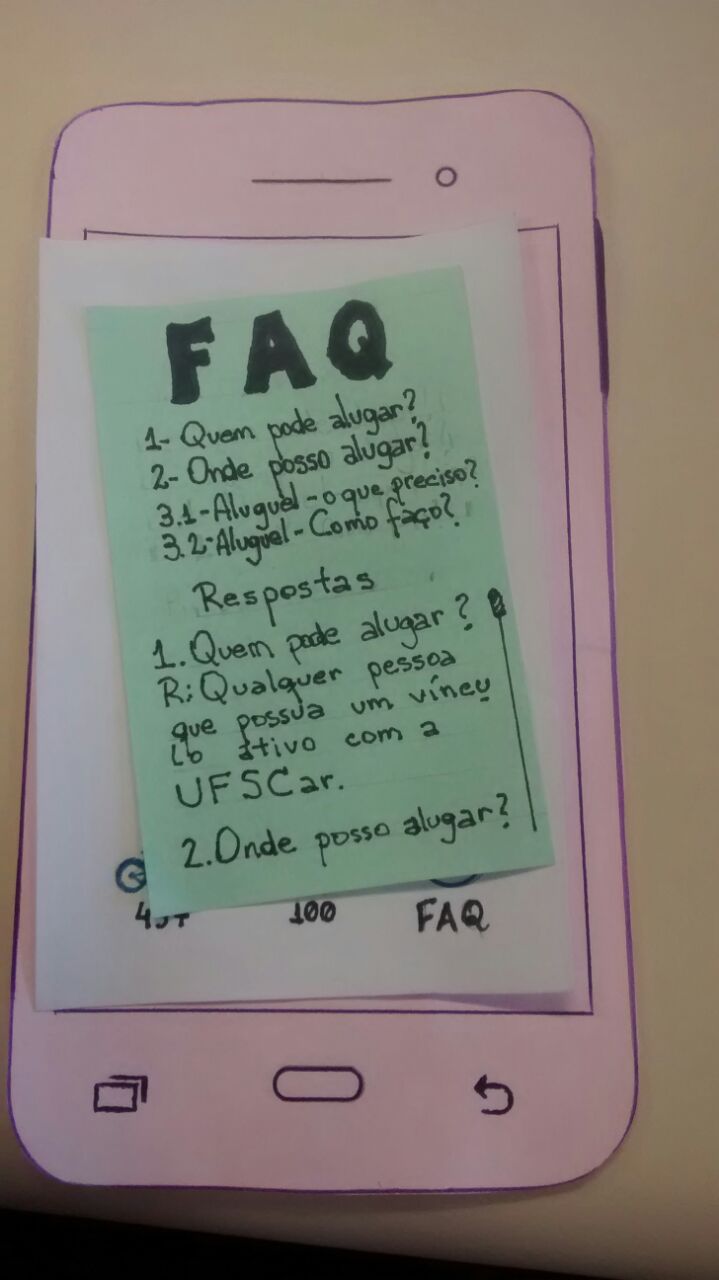 FAQ
1- Quem pode alugar?
2- Onde posso alugar?
3.1-Aluguel-o que preciso?
3.2-Aluguel-Como faço?
Respostas
1. Quem pode alugar?
R: Qualquer pessoa
que possua um víncu
lo ativo com a
UFSCar.
2. Onde posso alugar?
100 FAQ